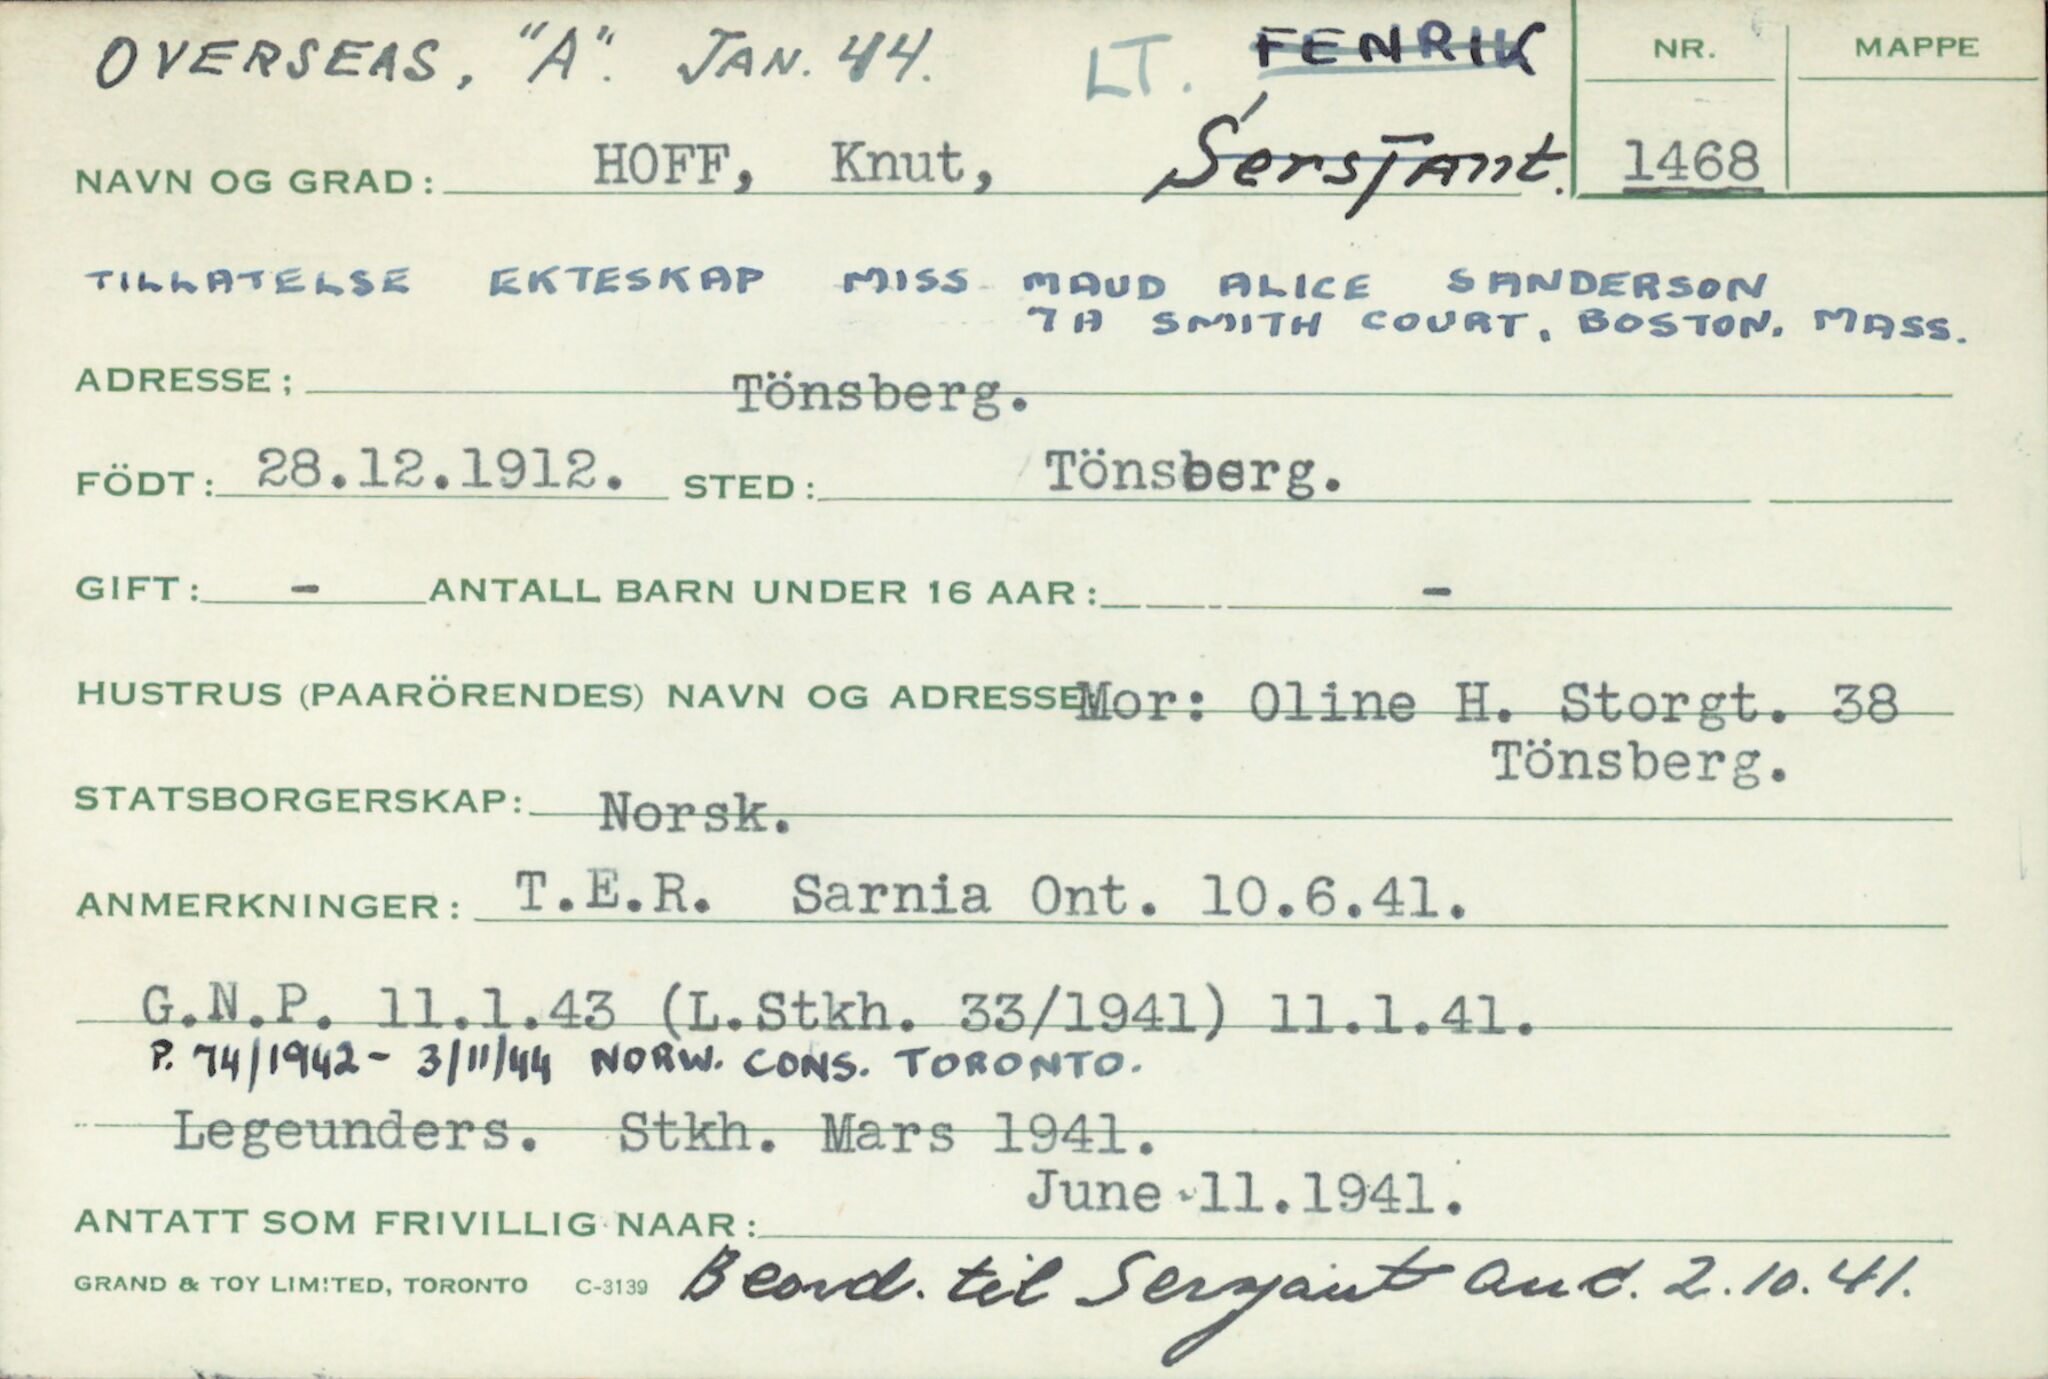 OVERSEAS, "A". JAN. 44. LT. FENRIK
NR. MAPPE
NAVN OG GRAD: HOFF, Knut, Sersjant. 1468
TILLATELSE EKTESKAP MISS MAUD ALICE SANDERSON
7A SMITH COURT, BOSTON. MASS.
ADRESSE; Tönsberg.
FÖDT: 28.12.1912. STED: Tönsberg.
GIFT: - ANTALL BARN UNDER 16 AAR: -
HUSTRUS (PAARÖRENDES) NAVN OG ADRESSE Mor: Oline H. Storgt. 38
Tönsberg.
STATSBORGERSKAP: Norsk.
ANMERKNINGER: T.E.R. Sarnia Ont. 10.6.41.
G.N.P. 11.1.43 (L.Stkh. 33/1941) 11.1.41.
P. 74/1942 - 3/11/44 NORW. CONS. TORONTO.
Legeunders. Stkh. Mars 1941.
June 11.1941.
ANTATT SOM FRIVILLIG NAAR:
GRAND & TOY LIMITED, TORONTO C-3139 Beord. til Sersjant anc. 2.10.41.